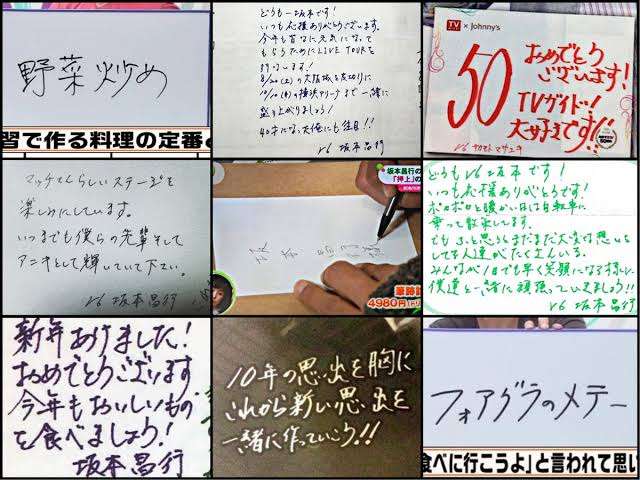 野菜炒め
習で作る料理の定番
どうも坂本です!
いつも応援ありがとうございます。
今年も皆なに元気になって
もらうためにLIVE TOURを
行います!
8/20(土)の大阪城を皮切りに
10/10(月)の横浜アリーナまで一緒に
盛り上がりましょう!
40才になった俺にも注目!!
V6 坂本昌行
TV × Johnny's
50
おめでとう
ございます!
TVガイド!
大好きです!!
V6 サカモトマサユキ
マッチさんらしいステージを
楽しみにしています。
いつまでも僕らの先輩そして
アニキとして輝いていて下さい。
V6 坂本昌行
坂本昌行の
「押上」の
筆跡
4980円
どうもV6坂本です!
いつも応援ありがとうです!
ポカポカと暖かい日は自転車に
乗って散歩してます。
でも ふと思うとまだまだ大変な想いを
してる人達がたくさんいる。
みんなが1日でも早く笑顔になる様に
僕達と一緒に頑張っていきましょう!!
V6 坂本昌行
新年あけました!
おめでとうございます
今年もおいしいもの
を食べましょう!
坂本昌行
10年の思い出を胸に
これから新しい思い出を
一緒に作っていこう!!
フォアグラのメテー
食べに行こうよ」と言われて思い